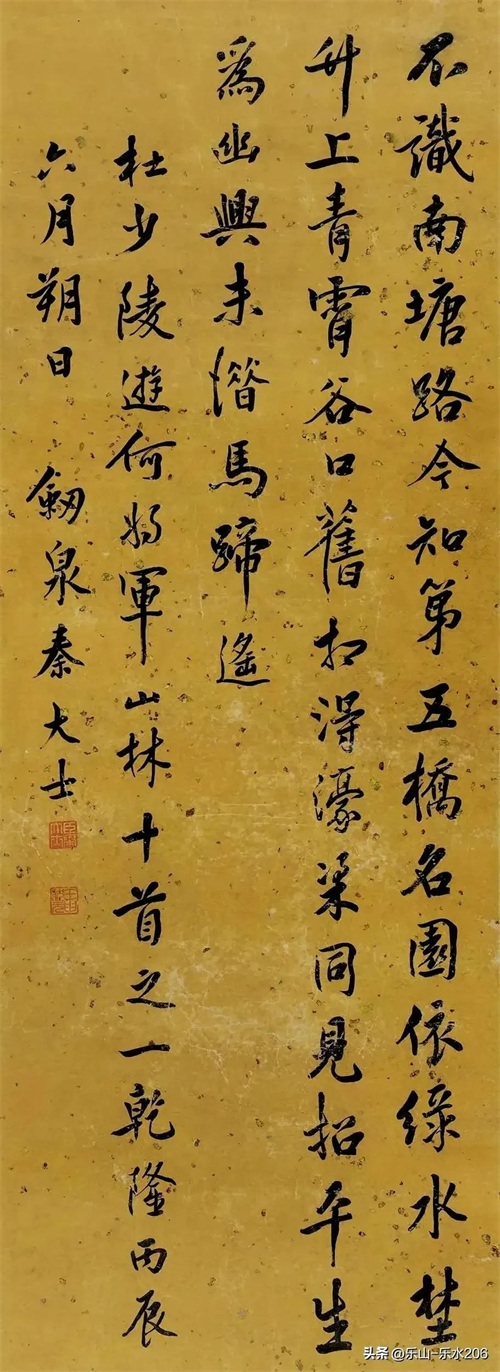 不識南塘路今知第五橋名園依綠水埜
竹上青霄谷口舊相得濠梁同見招平生
爲幽興未惜馬蹄遙
杜少陵遊何將軍山林十首之一乾隆丙辰
六月朔日 劔泉秦大士
头条 @乐山-乐水206